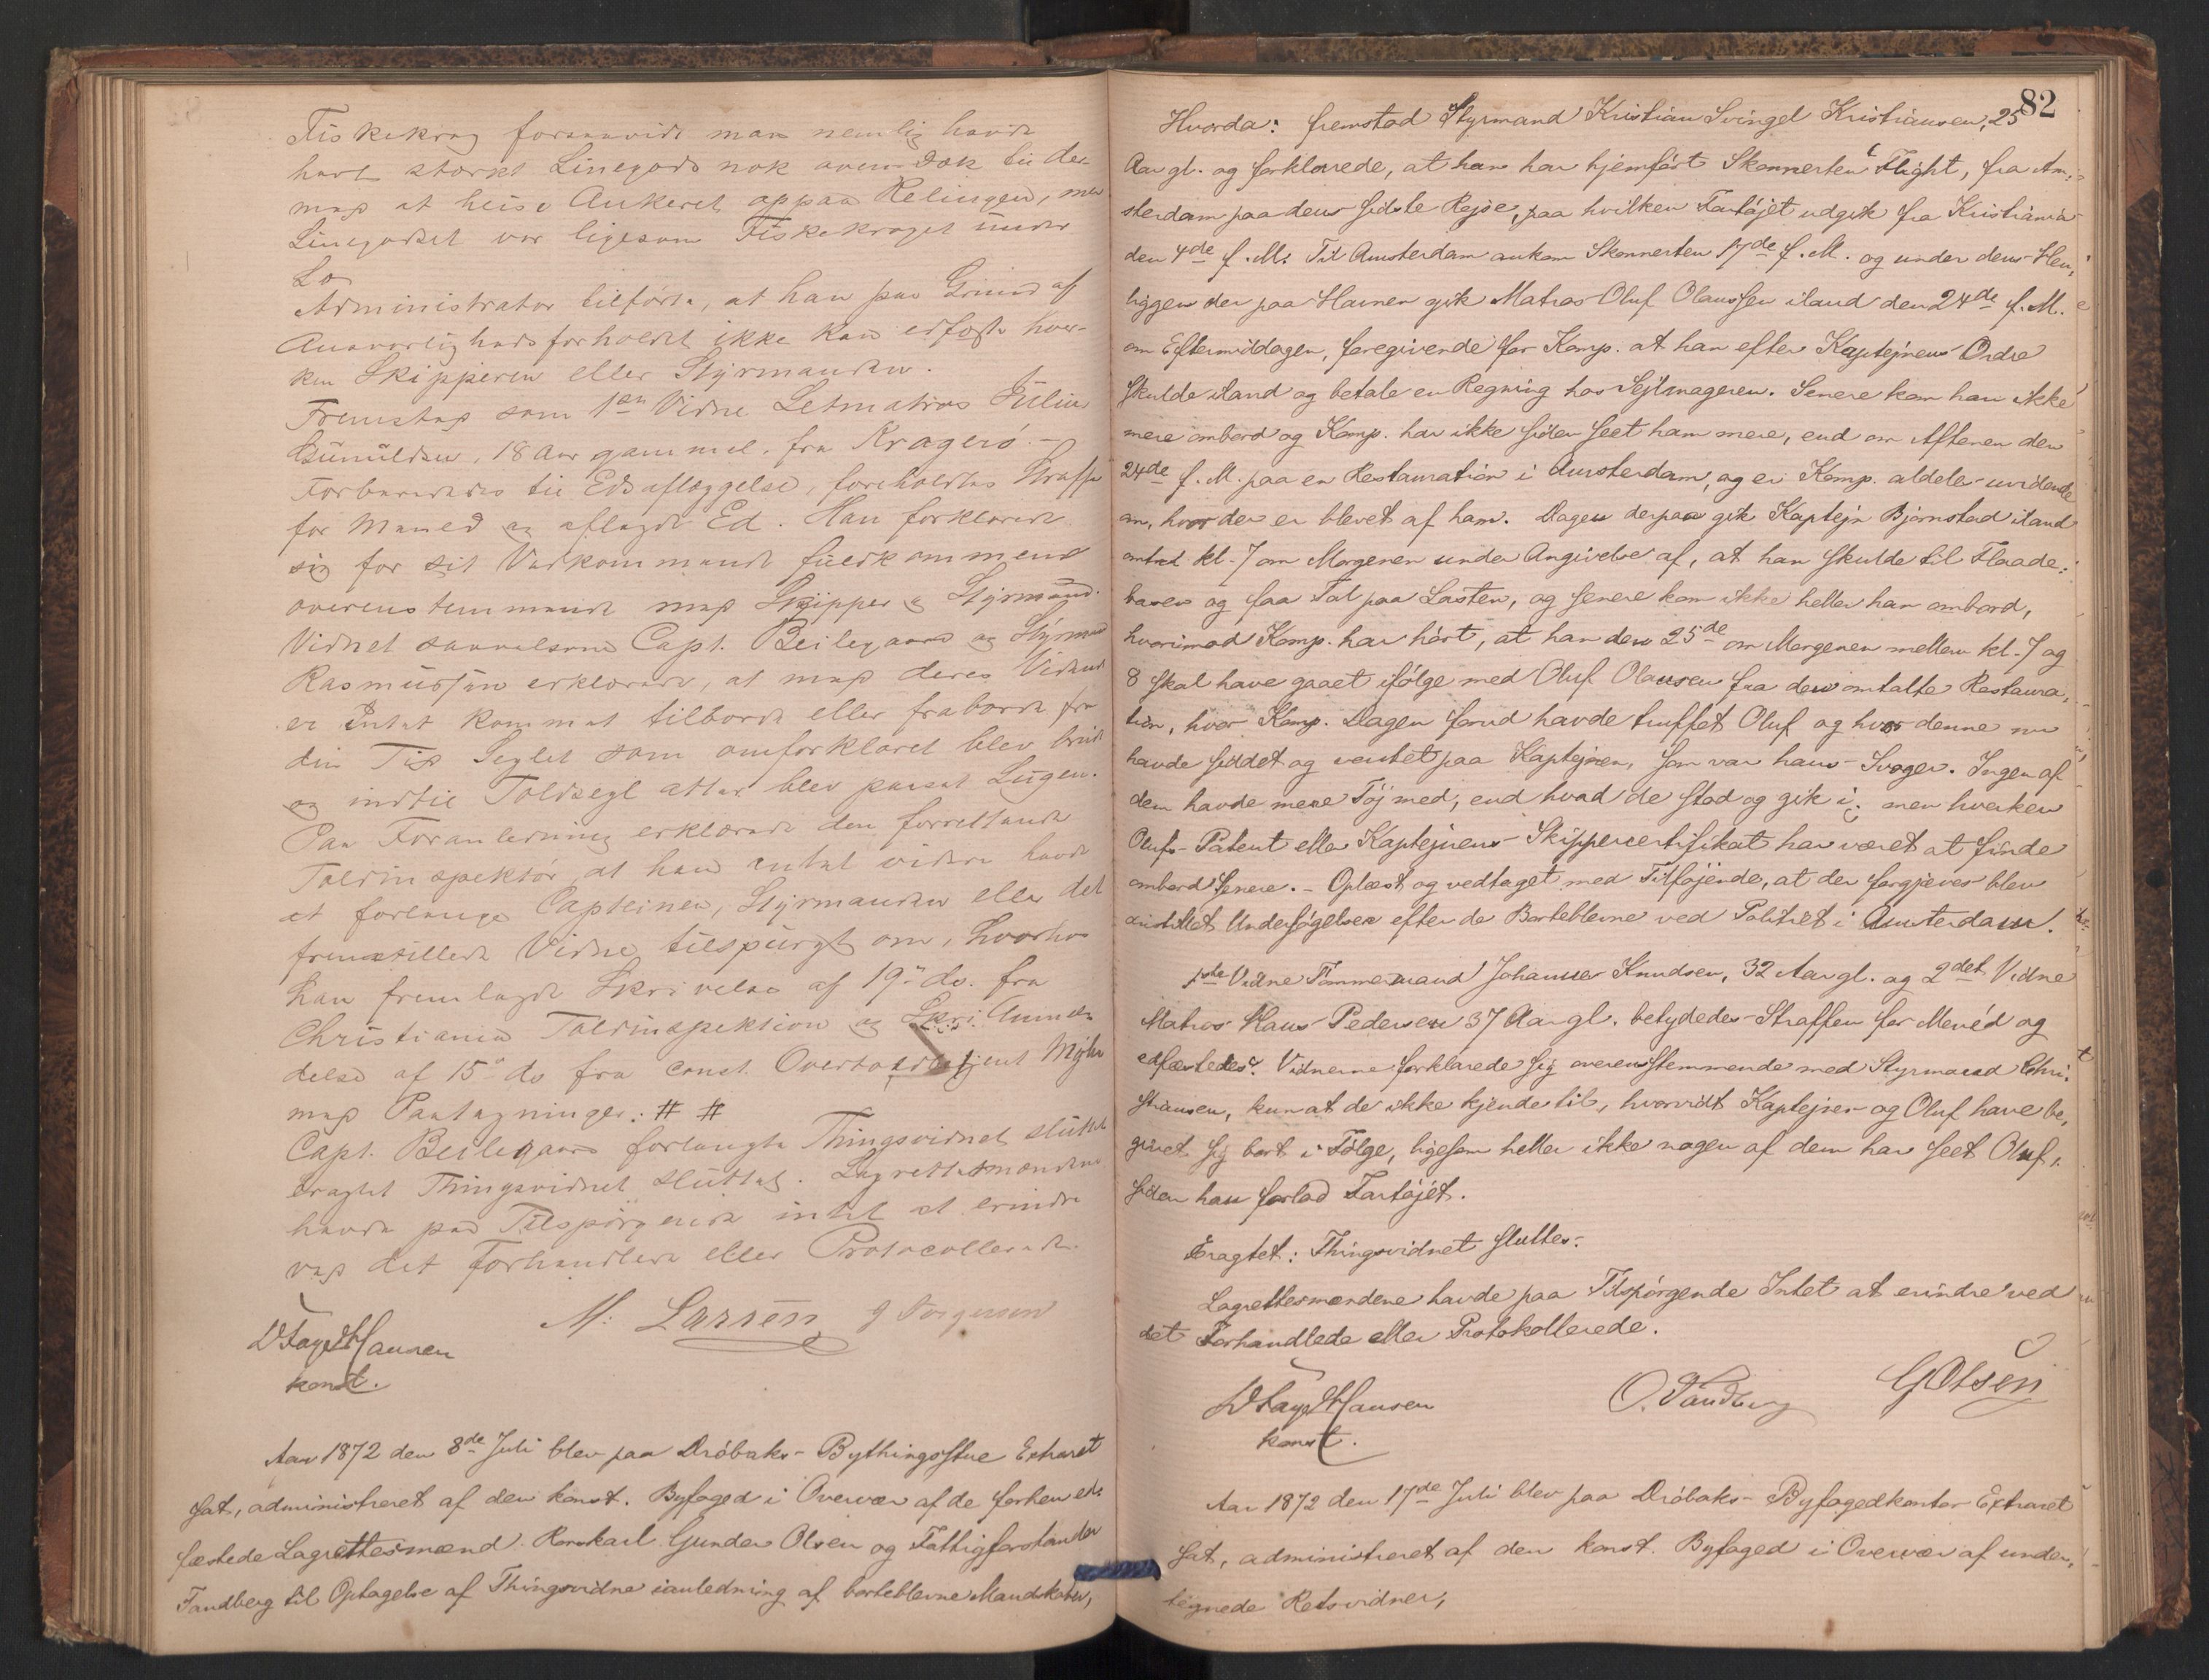 Fiskekrog forsaavidt man nemlig havde
havt stærkt Linegods nok oven Dæk til der
med at heise Ankeret oppaa Relingen, men
Linegodset var ligesom Fiskekroget under
Administrator tilførte, at han paa Grund af
Ansvarlighedsforholdet ikke kan edfæste hver-
ken Skipperen eller Styrmanden.
Fremstod som 1ste Vidne Letmatros Julius
Gunuldsen, 18 Aar gammel, fra Kragerö. -
Forberededes til Edsaflæggelse, foreholdtes Straffen
for Meened og aflagde Ed. Han forklarede
sig for sit Vedkommende fuldkommen
overenstemmende med Skipper og Styrmand.
Vidnet saavelsom Capt. Beilegaard og Styrmand
Rasmussen erklærede, at med deres Vidende
er Intet kommet tilborde eller fraborde fra
den Tid Seglet som omforklaret blev brudt
og indtil Toldsegl atter blev paasat Lugen.
Paa Foranledning erklærede den forrettende
Toldinspektör, at han intet videre havde
at forlange Capteinen, Styrmanden eller det
fremstillede Vidne tilspurgt om, hvorhos
han fremlagde Skrivelse af 19de ds. fra
Christiania Toldinspektion og Anmel-
delse af 15de ds fra const. Overtoldbetjent Myhre
med Paategninger: # #
Capt. Beilegaard forlangte Thingsvidnet sluttet
Eragtet Thingsvidnet sluttet. Lagrettesmændene
havde paa Tilspørgende intet at erindre
ved det Forhandlede eller Protocollerede.
M. Larsen J Torgersen
D Faye Hansen
konst.
Aar 1872 den 8de Juli blev paa Dröbaks Bythingsstue Extraret
sat, administreret af den konst. Byfoged i Overvær af de forhen ed-
fæstede Lagrettesmænd Gunder Olsen og Fattigforstander
Tandberg til Optagelse af Thingsvidne ianledning af borteblevne Mandskaber,
82
Hvorda: fremstod Styrmand Kristian Svingel Kristiansen, 25
Aar gl. og forklarede, at han har hjemfört Skonnerten Flight, fra Am-
sterdam paa dens sidste Rejse, paa hvilken Fartöjet udgik fra Kristiania
den 4de f. M. Til Amsterdam ankom Skonnerten 17de f. M. og under dens Hen-
liggen der paa Havnen gik Matros Oluf Olaussen iland den 24de f. M.
om Eftermiddagen, foregivende for Komp. at han efter Kaptejnens Ordre
skulde iland og betale en Regning hos Sejlmageren. Senere kom han ikke
mere ombord og Komp. har ikke siden seet ham mere, end om Aftenen den
24de f. M. paa en Restauration i Amsterdam, og er Komp. aldeles uvidende
om, hvor der er blevet af ham. Dagen derpaa gik Kaptejn Bjørnstad iland
omtrent kl. 7 om Morgenen under Angivelse af, at han skulde til Flaade-
basen og faa Tal paa Lasten, og senere kom ikke heller han ombord,
hvorimod Komp. har hört, at han den 25de om Morgenen mellem kl. 7 og
8 skal have gaaet ifölge med Oluf Olaussen fra den omtalte Restaura-
tion, hvor Komp. Dagen forud havde truffet Oluf og hvor denne nu
havde siddet og ventet paa Kaptejnen, som var hans Svoger. Ingen af
dem havde mere Töj med, end hvad de stod og gik i; men hverken
Olufs Patent eller Kaptejnens Skippercertifikat har været at finde
ombord senere. - Oplæst og vedtaget med Tilföjende, at der forgjæves blev
anstillet Undersögelser efter de Borteblevne ved Politiet i Amsterdam.
1ste Vidne Tömmermand Johannes Knudsen, 32 Aar gl. og 2det Vidne
Matros Klaus Pedersen 37 Aar gl. betydedes Straffen for Mened og
edfæstedes. Vidnerne forklarede sig overensstemmende med Styrmand Chri-
stiansen, kun at de ikke kjende til, hvorvidt Kaptejnen og Oluf have be-
givet sig bort i Fölge, ligesom heller ikke nogen af dem har seet Oluf,
siden han forlod Fartöjet.
Eragtet: Thingsvidnet sluttes.
Lagrettesmændene havde paa Tilspörgende Intet at erindre ved
det Forhandlede eller Protokollerede.
D Faye Hansen O. Tandberg G Olsen
konst.
Aar 1872 den 17de Juli blev paa Dröbaks Byfogedkontor Extraret
sat, administreret af den konst. Byfoged i Overvær af under-
tegnede Retsvidner,